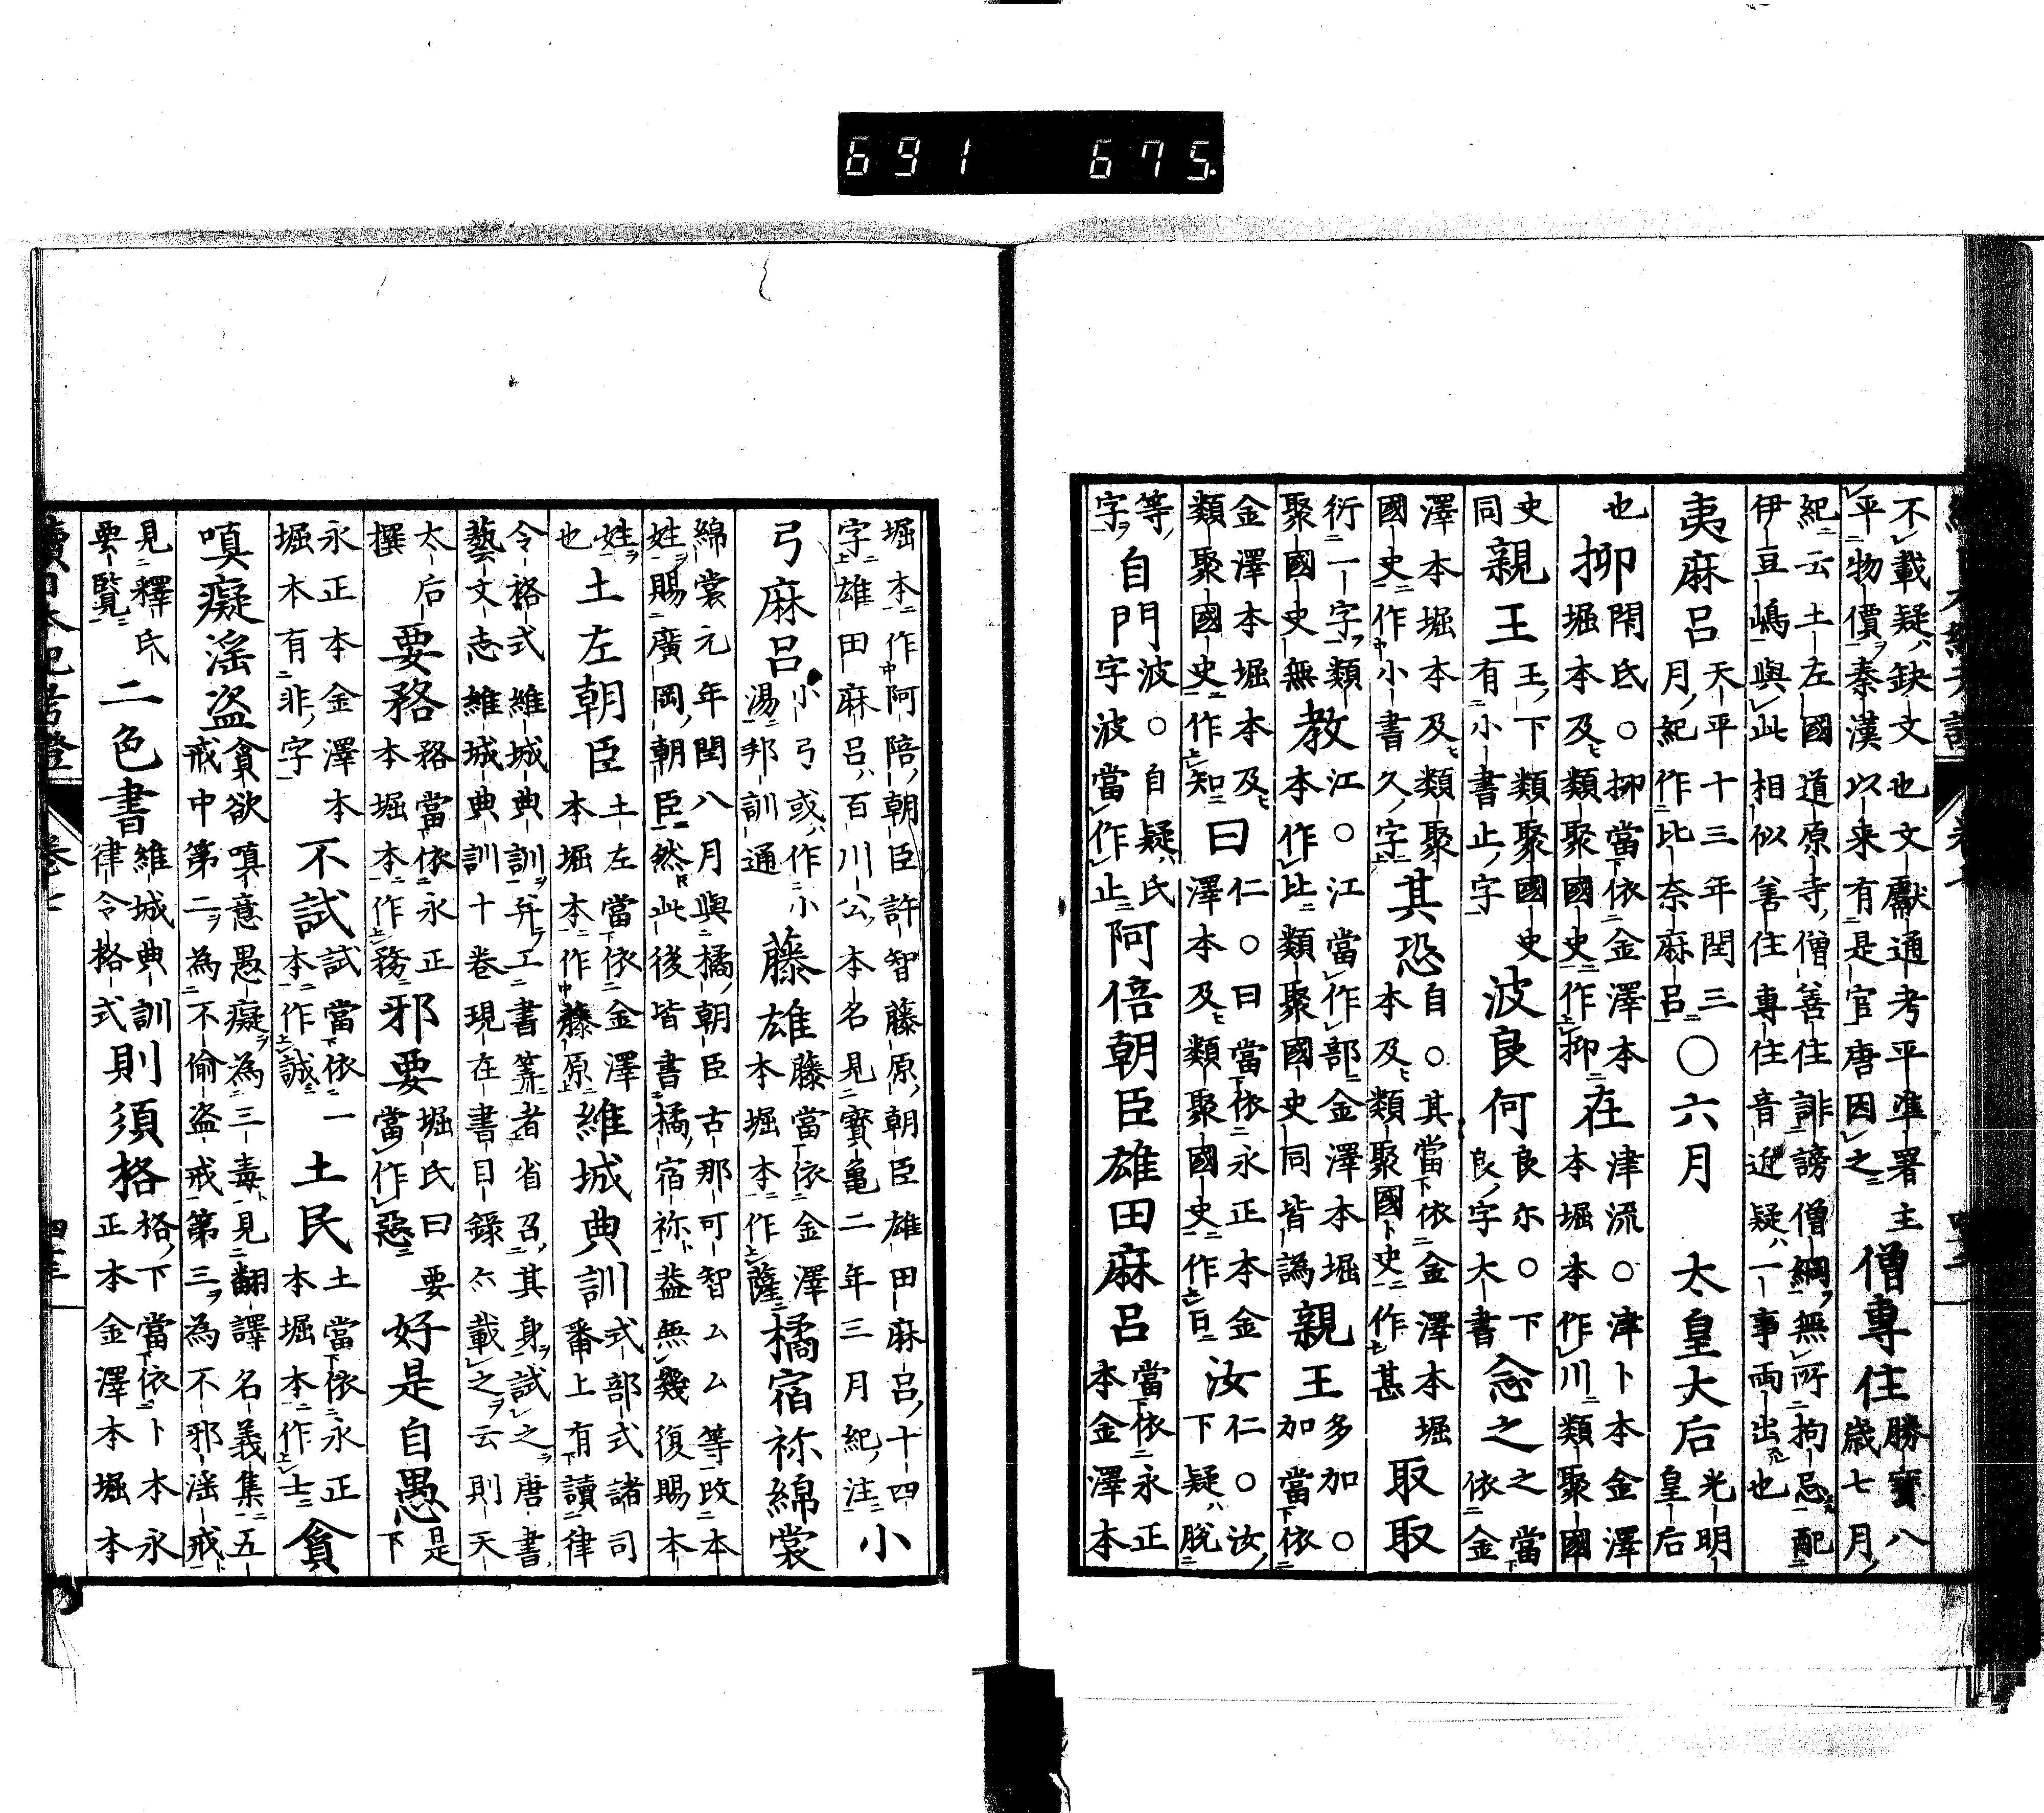 691 675
不載疑ハ缺文也文獻通考平準署主
平物價ヲ秦漢以来有是官唐因之
僧專住
勝寶八
歳七月
紀云土左國道原寺僧善住誹謗僧綱ヲ無所拘忌配
伊豆嶋與此相似善住專住音近疑ハ一事両出也
夷麻呂
天平十三年閏三
月紀作比奈麻呂
〇六月 太皇大后
光明
皇后
也
抑
閑氏〇抑當依金澤本
堀本及類聚國史作抑
在
津流〇津卜本金澤
本堀本作川類聚國
史
同
親王
王下類聚國史
有小書止字
波良何
良尓〇下
良字大書
念之
之當
依金
澤本堀本及類聚
國史作小書久字
其恐
自〇其當依金澤本堀
本及類聚國史作甚
取取
衍一字類
聚國史無
教
江〇江當作部金澤本堀
本作比類聚國史同皆譌
親王
多加〇
加當依
金澤本堀本及
類聚國史作知
曰
仁〇曰當依永正本金
澤本及類聚國史作曰
汝
仁〇汝
下疑ハ脱
等
字ヲ
自門
波〇自疑ハ氏
字波當作止
阿倍朝臣雄田麻呂
當依永正
本金澤本
堀本作阿陪朝臣許智藤原朝臣雄田麻呂十四
字雄田麻呂ハ百川公本名見寶亀二年三月紀注
小
弓麻呂
小弓或ハ作小
湯邦訓通
藤雄
藤當依金澤
本堀本作薩
橘宿祢綿裳
綿裳元年閏八月與橘朝臣古那可智厶厶等改本
姓ヲ賜廣岡朝臣然此後皆書橘宿祢益無幾復賜本
姓ヲ
也
土左朝臣
土左當依金澤
本堀本作藤原
維城典訓
式部式諸司
番上有讀律
令格式維城典訓ヲ并工書等者省召其身ヲ試之ヲ唐書
藝文志維城典訓十卷現在書目錄亦載之ヲ云則天
太后
撰
要務
務當依永正
本堀本作務
邪要
堀氏曰要
當作惡
好是自愚
是
下
永正本金澤本
堀本有非字
不試
試當依一
本作誠
土民
土當依永正
本堀本作士
貪
嗔癡滛盜
貪欲嗔意愚癡ヲ為三毒見翻譯名義集五
戒中第二ヲ為不偷盜戒第三ヲ為不邪滛戒
見釋氏
要覽
二色書
維城典訓
律令格式
則須格
格下當依卜本永
正本金澤本堀本